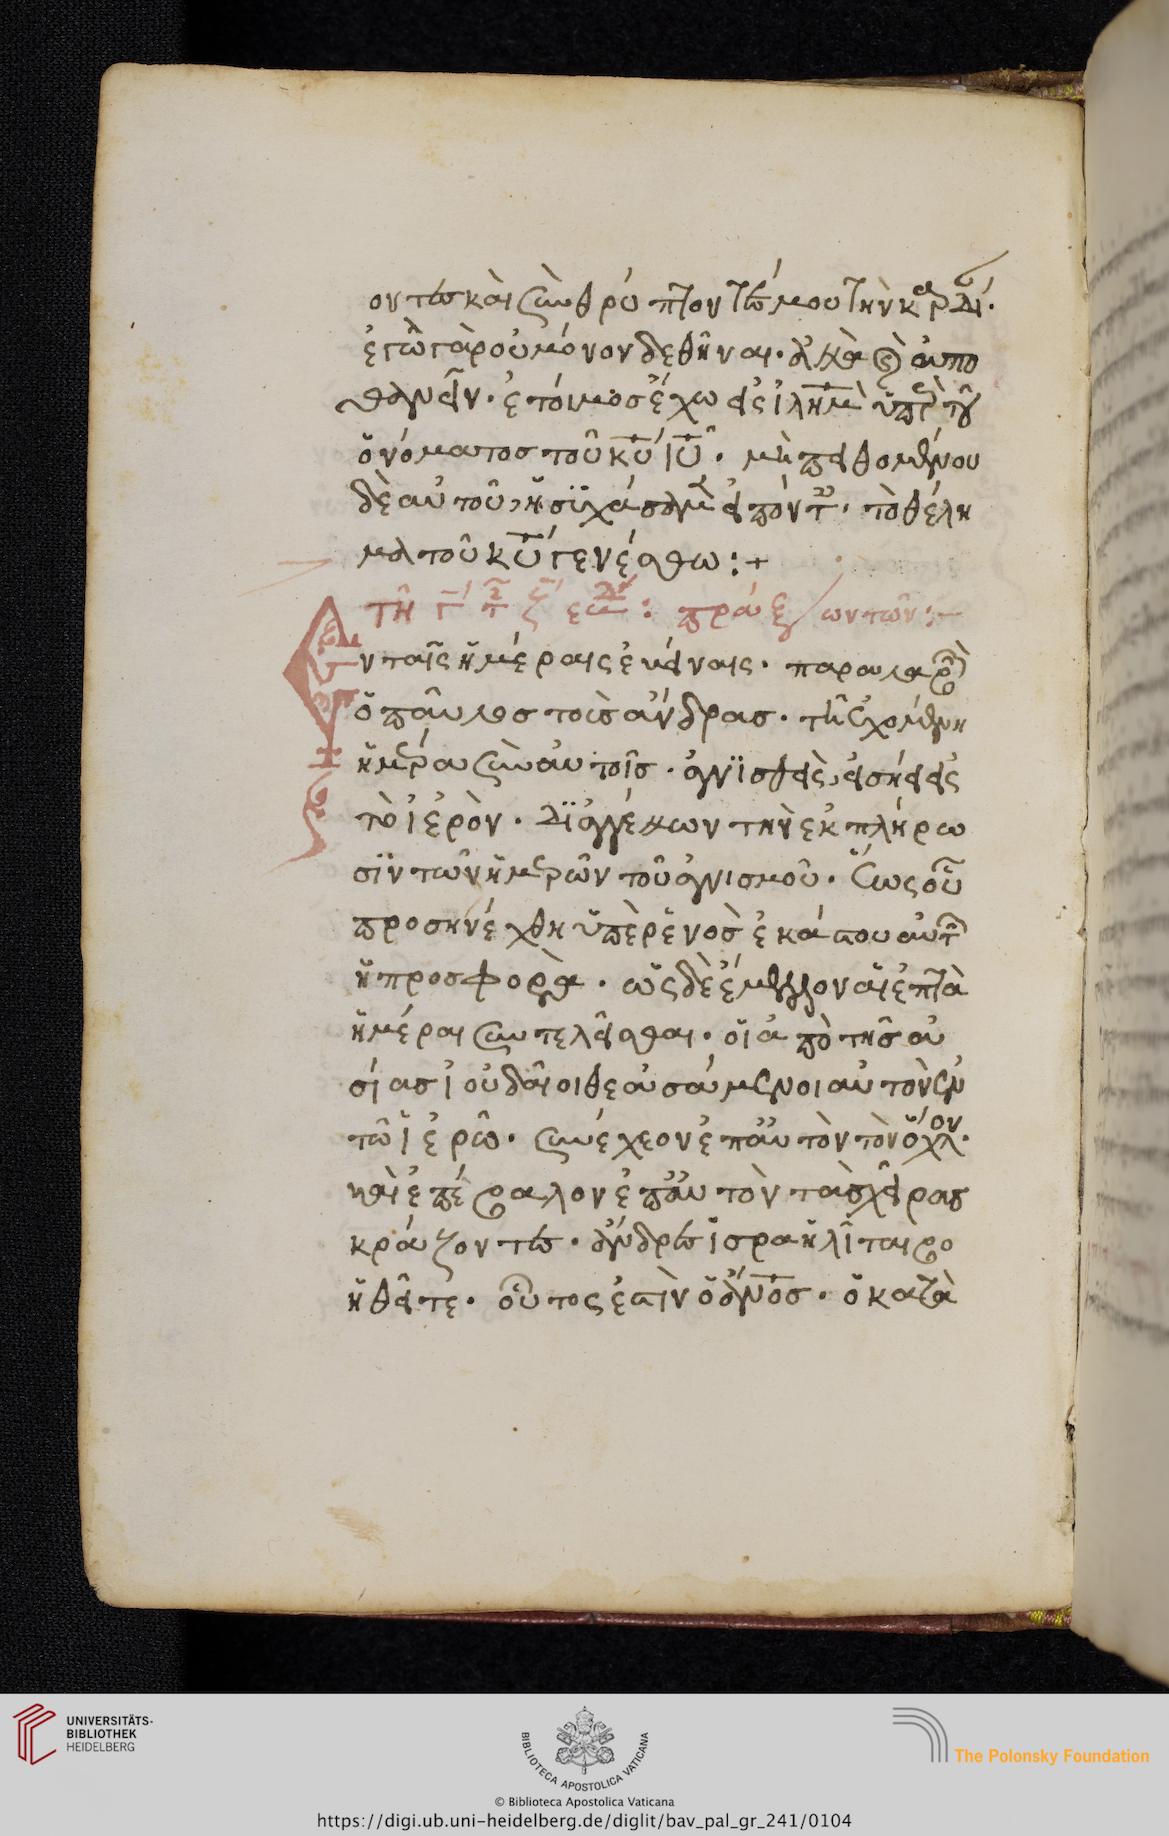 οντες καὶ σὺν θρύπτοντές μου τὴν καρδί·
ἐγὼ γὰρ οὐ μόνον δεθῆναι· ἀλλὰ καὶ ἀπο
θανεῖν· ἑτοίμος ἔχω εἰς ἰλημ ὑπὲρ τοῦ
ὀνόματος τοῦ κυ ιυ· μὴ πειθομένου
δὲ αὐτοῦ, ἡσϊχάσαμεν εἰπόντ· τὸ θέλη
μα τοῦ κυ γενέσθω:+
τῆ πράξεων τῶν:
ν ταῖς ἡμέραις ἐκείναις· παραλαβὼ
ὁ παῦλος τοὺς ἄνδρας· τῆ ἐχομένη
ἡμέρα σὺν αὐτοῖς· ἁγνϊσθεὶς, εἰσήει εἰς
τὸ ἱερὸν· διαγγέλλων τὴν ἐκπλήρω
σϊν τῶν ἡμερῶν τοῦ ἁγνισμοῦ· ἕως οὗ
προσηνέχθη ὑπὲρ ἑνὸς ἑκάστου αὐτ
ἡ προσφορὰ· ὡς δὲ ἔμελλον αἱ ἑπτὰ
ἡμέραι συντελεῖσθαι· οἱ ἀπὸ τῆς ἀ
σίας ἰουδαῖοι θεασάμενοι αὐτὸν ἐν
τῶ ἱερῶ· συνέχεον ἐπ αὐτὸν τὸν ὄχλον·
καὶ ἐπέβαλον ἐπ αὐτὸν τὰς χεῖρας
κράζοντες· ἄνδρες ἰσραηλῖται βο
ηθεῖτε· οὗτος ἐστὶν ὁ ἄνος· ὁ κατὰ
UNIVERSITÄTS-
BIBLIOTHEK
HEIDELBERG
BIBLIOTECA APOSTOLICA VATICANA
The Polonsky Foundation
© Biblioteca Apostolica Vaticana
https://digi.ub.uni-heidelberg.de/diglit/bav_pal_gr_241/0104